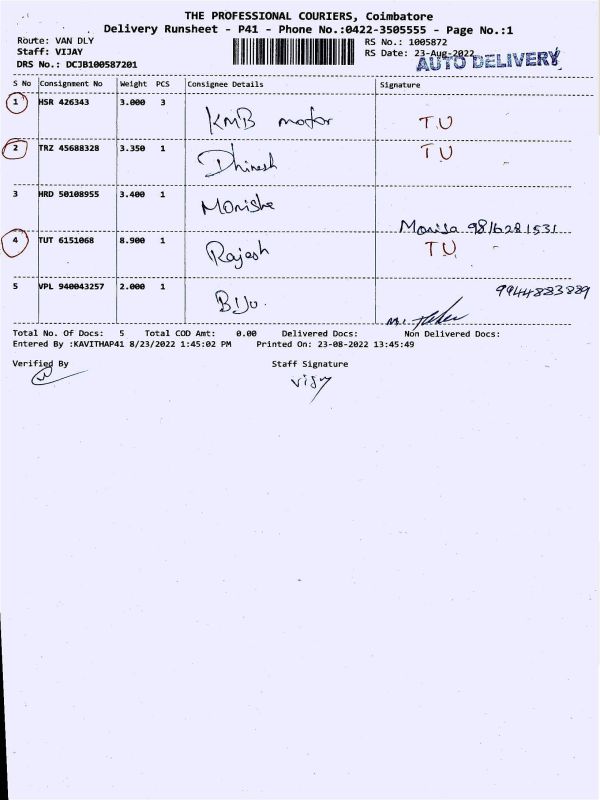 THE PROFESSIONAL COURIERS, Coimbatore
Delivery Runsheet - P41 - Phone No.:0422-3505555 - Page No.:1
Route: VAN DLY
RS No.: 1005872
Staff: VIJAY
RS Date: 23-Aug-2022
AUTO DELIVERY
DRS No.: DCJB100587201
S No Consignment No Weight PCS Consignee Details Signature
1 HSR 426343 3.000 3 KMB motor TU
2 TRZ 45688328 3.350 1 Dhinesh TU
3 HRD 50108955 3.400 1 Monisha Monisa 9816281531
4 TUT 6151068 8.900 1 Rajesh TU
5 VPL 940043257 2.000 1 Biju. 9944883889
Total No. Of Docs: 5 Total COD Amt: 0.00 Delivered Docs: Non Delivered Docs:
Entered By :KAVITHAP41 8/23/2022 1:45:02 PM Printed On: 23-08-2022 13:45:49
Verified By Staff Signature
vijay